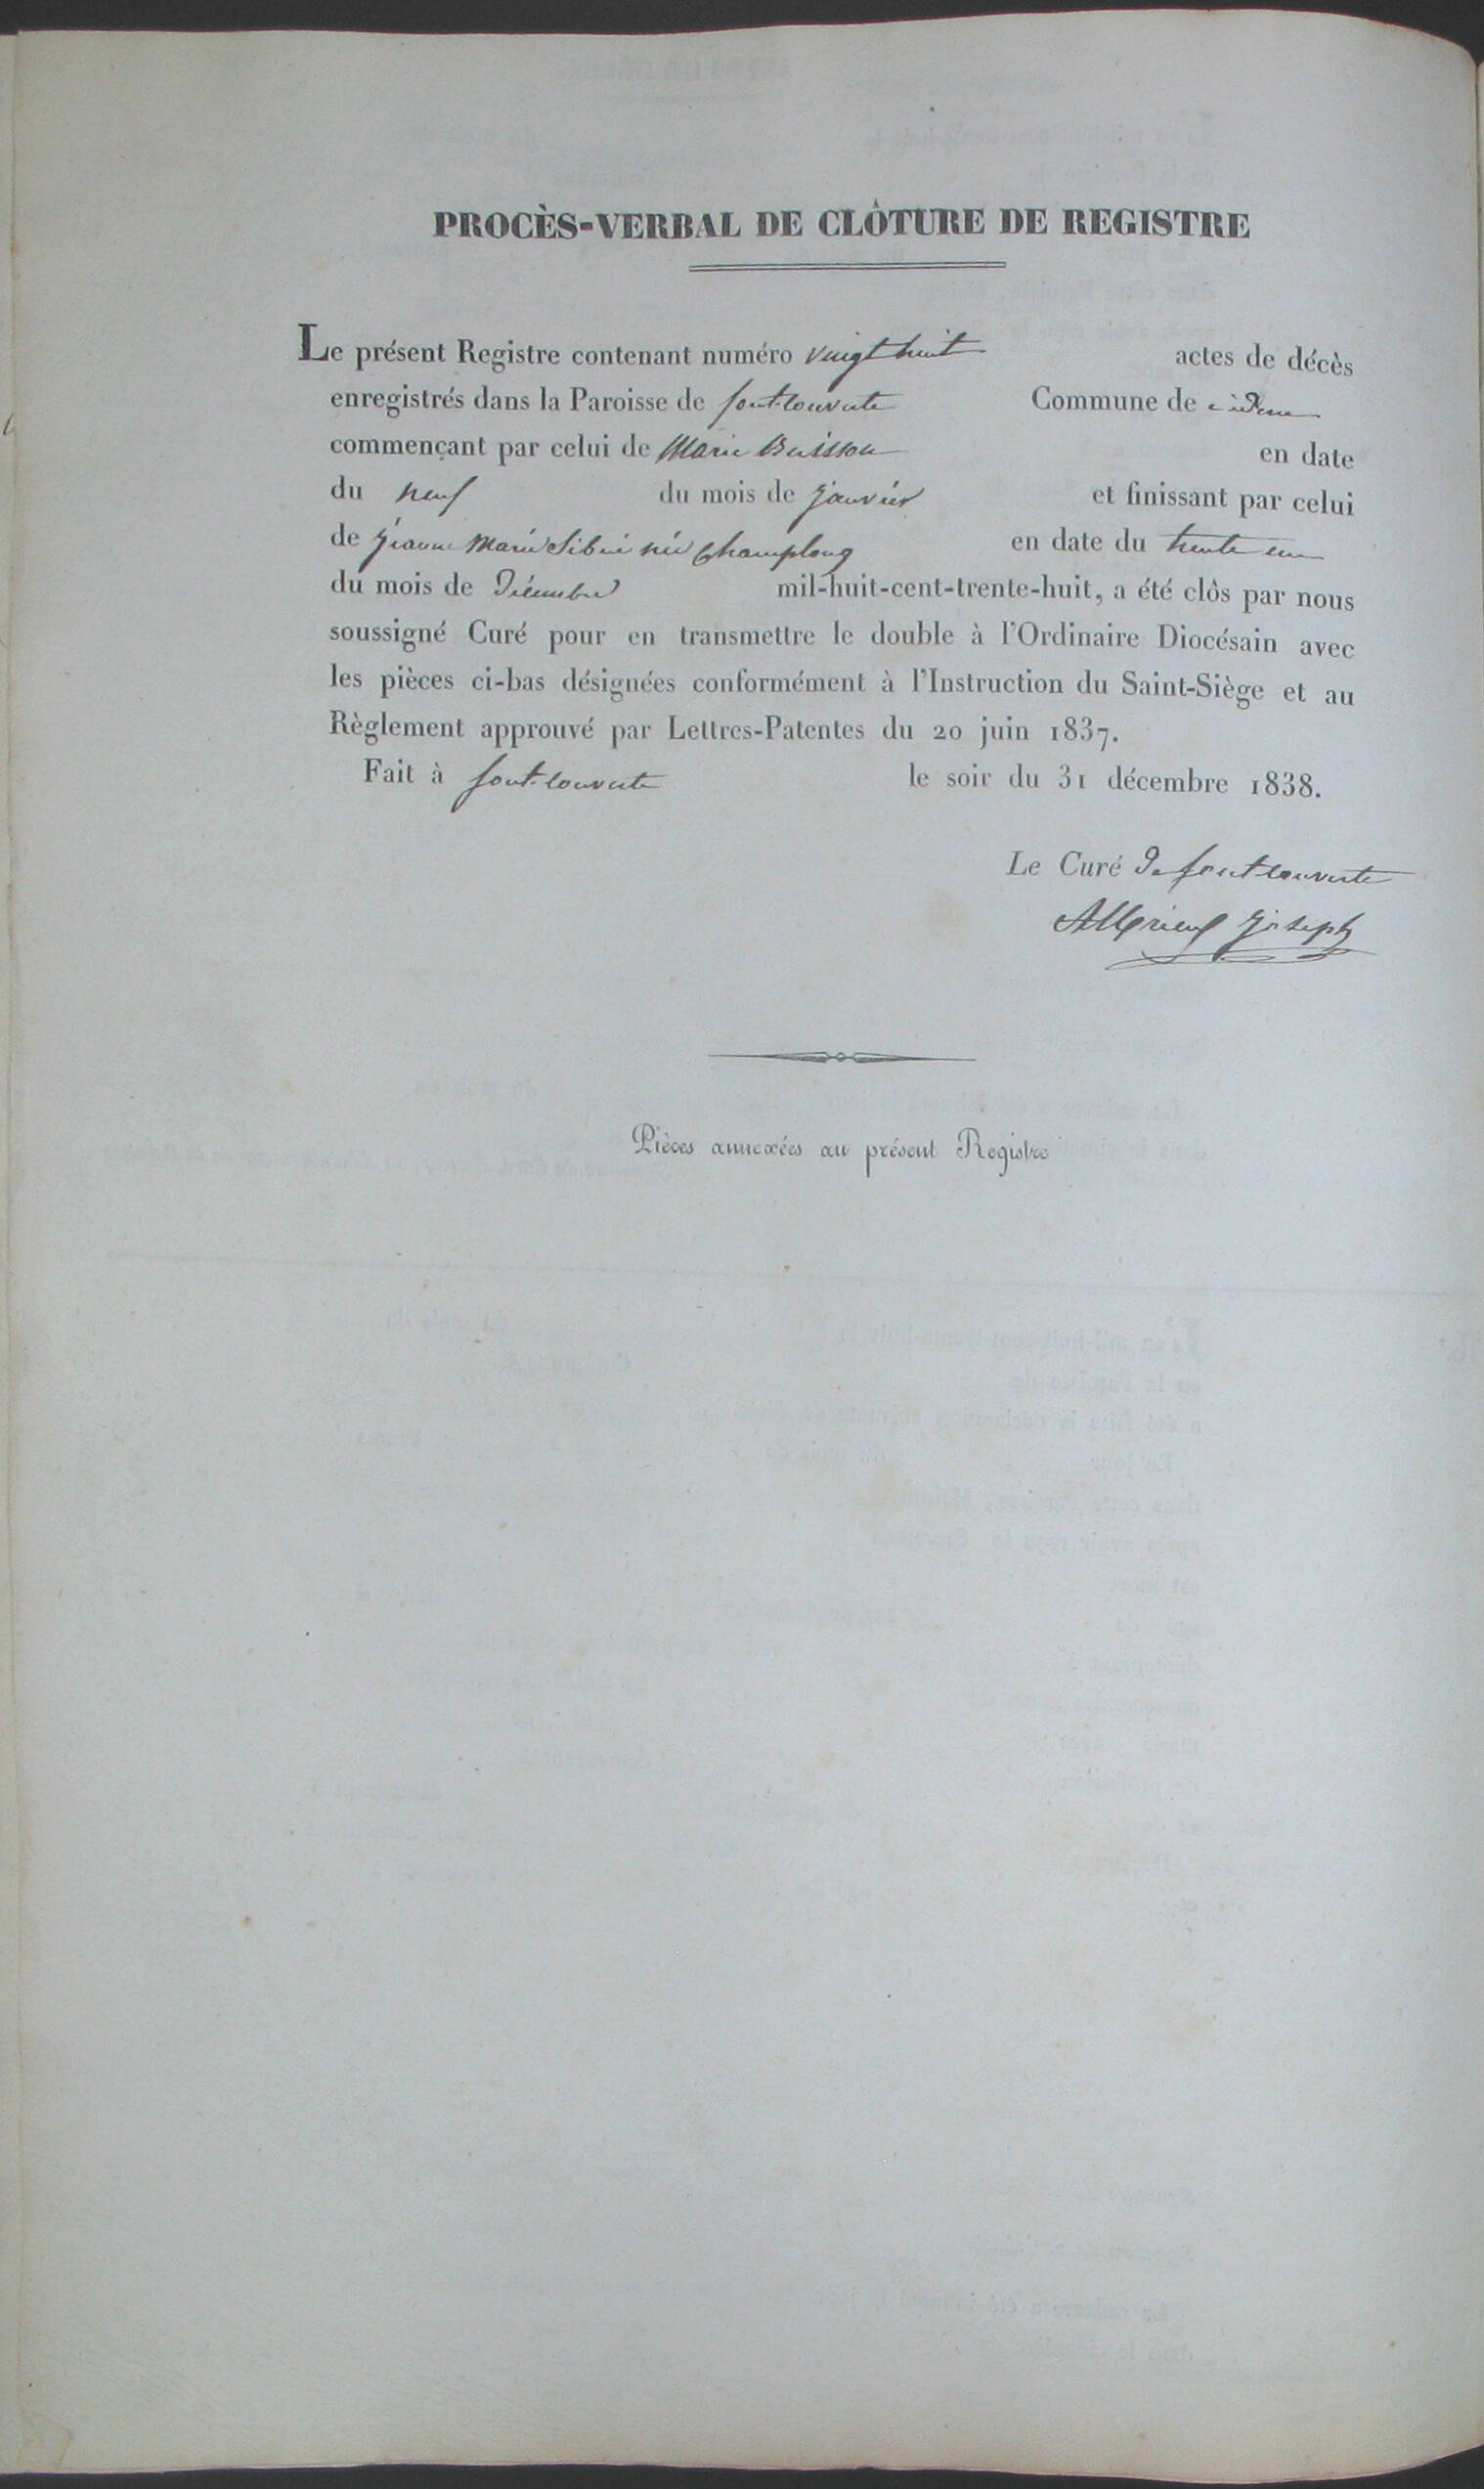 PROCÈS-VERBAL DE CLÔTURE DE REGISTRE
Le présent Registre contenant numéro vingt huit actes de décès
enregistrés dans la Paroisse de fontcouverte Commune de idem
commençant par celui de Marie Buisson en date
du neuf du mois de janvier et finissant par celui
de jeanne Marie Sibué née Champlong en date du trente un
du mois de Décembre mil-huit-cent-trente-huit, a été clòs par nous
soussigné Curé pour en transmettre le double à l'Ordinaire Diocésain avec
les pièces ci-bas désignées conformément à l'Instruction du Saint-Siège et au
Règlement approuvé par Lettres-Patentes du 20 juin 1837.
Fait à fontcouverte le soir du 31 décembre 1838.
Le Curé De fontcouverte
joseph
Pièces annexées au présent Registre